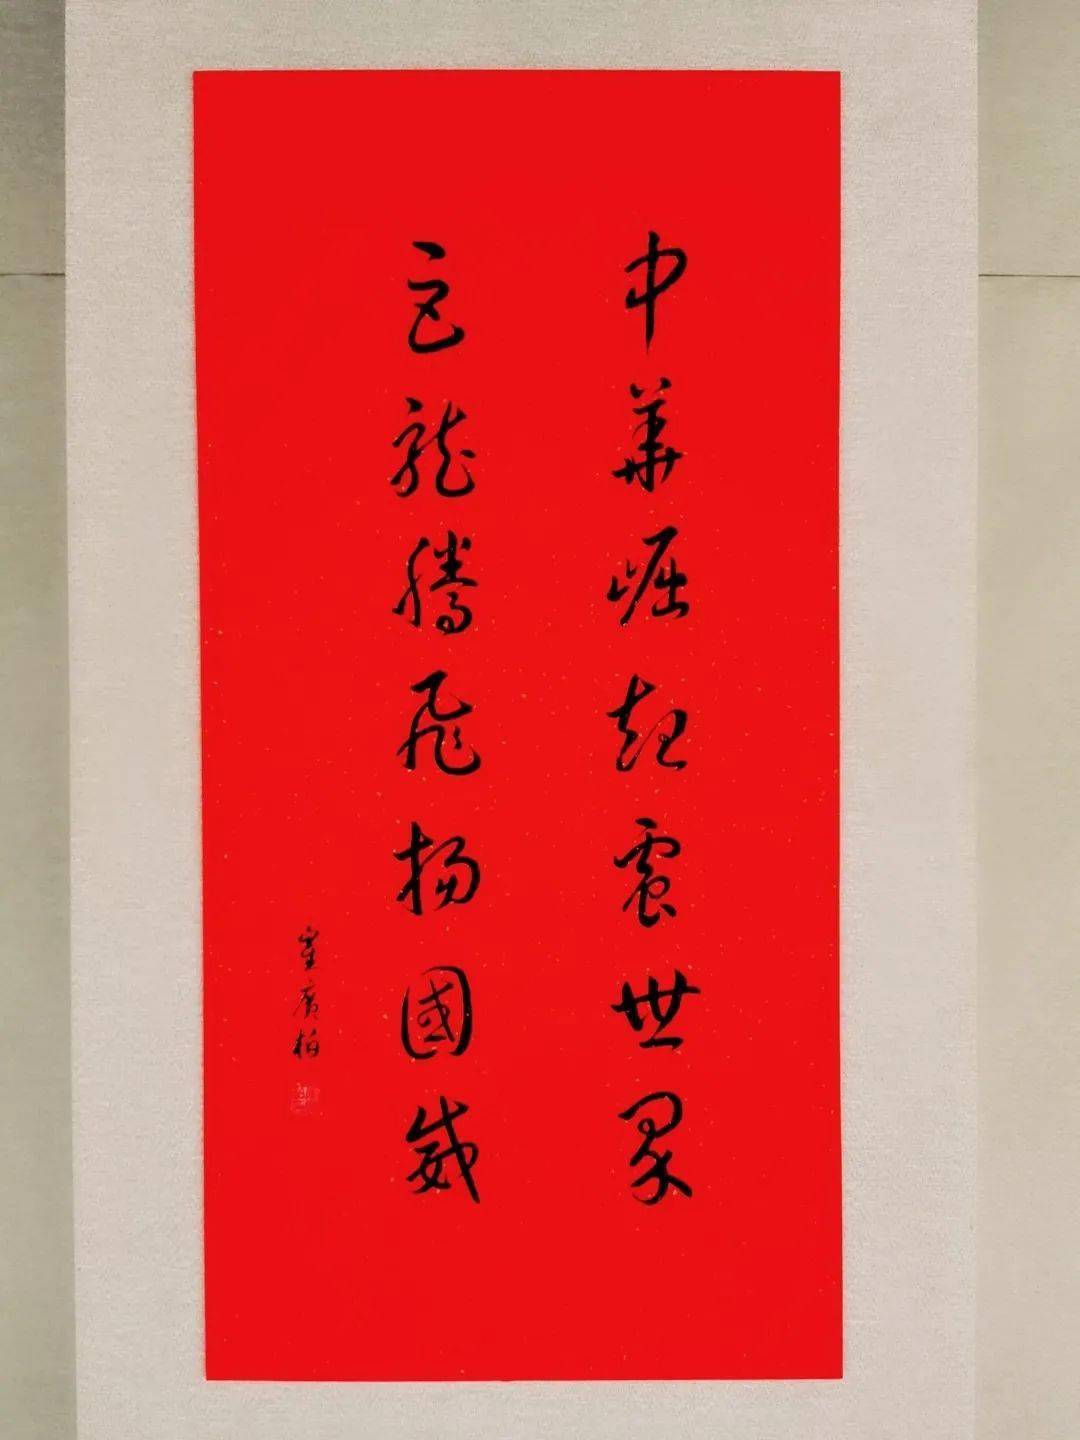 中華崛起震世界
巨龍騰飛揚國威
廣柏